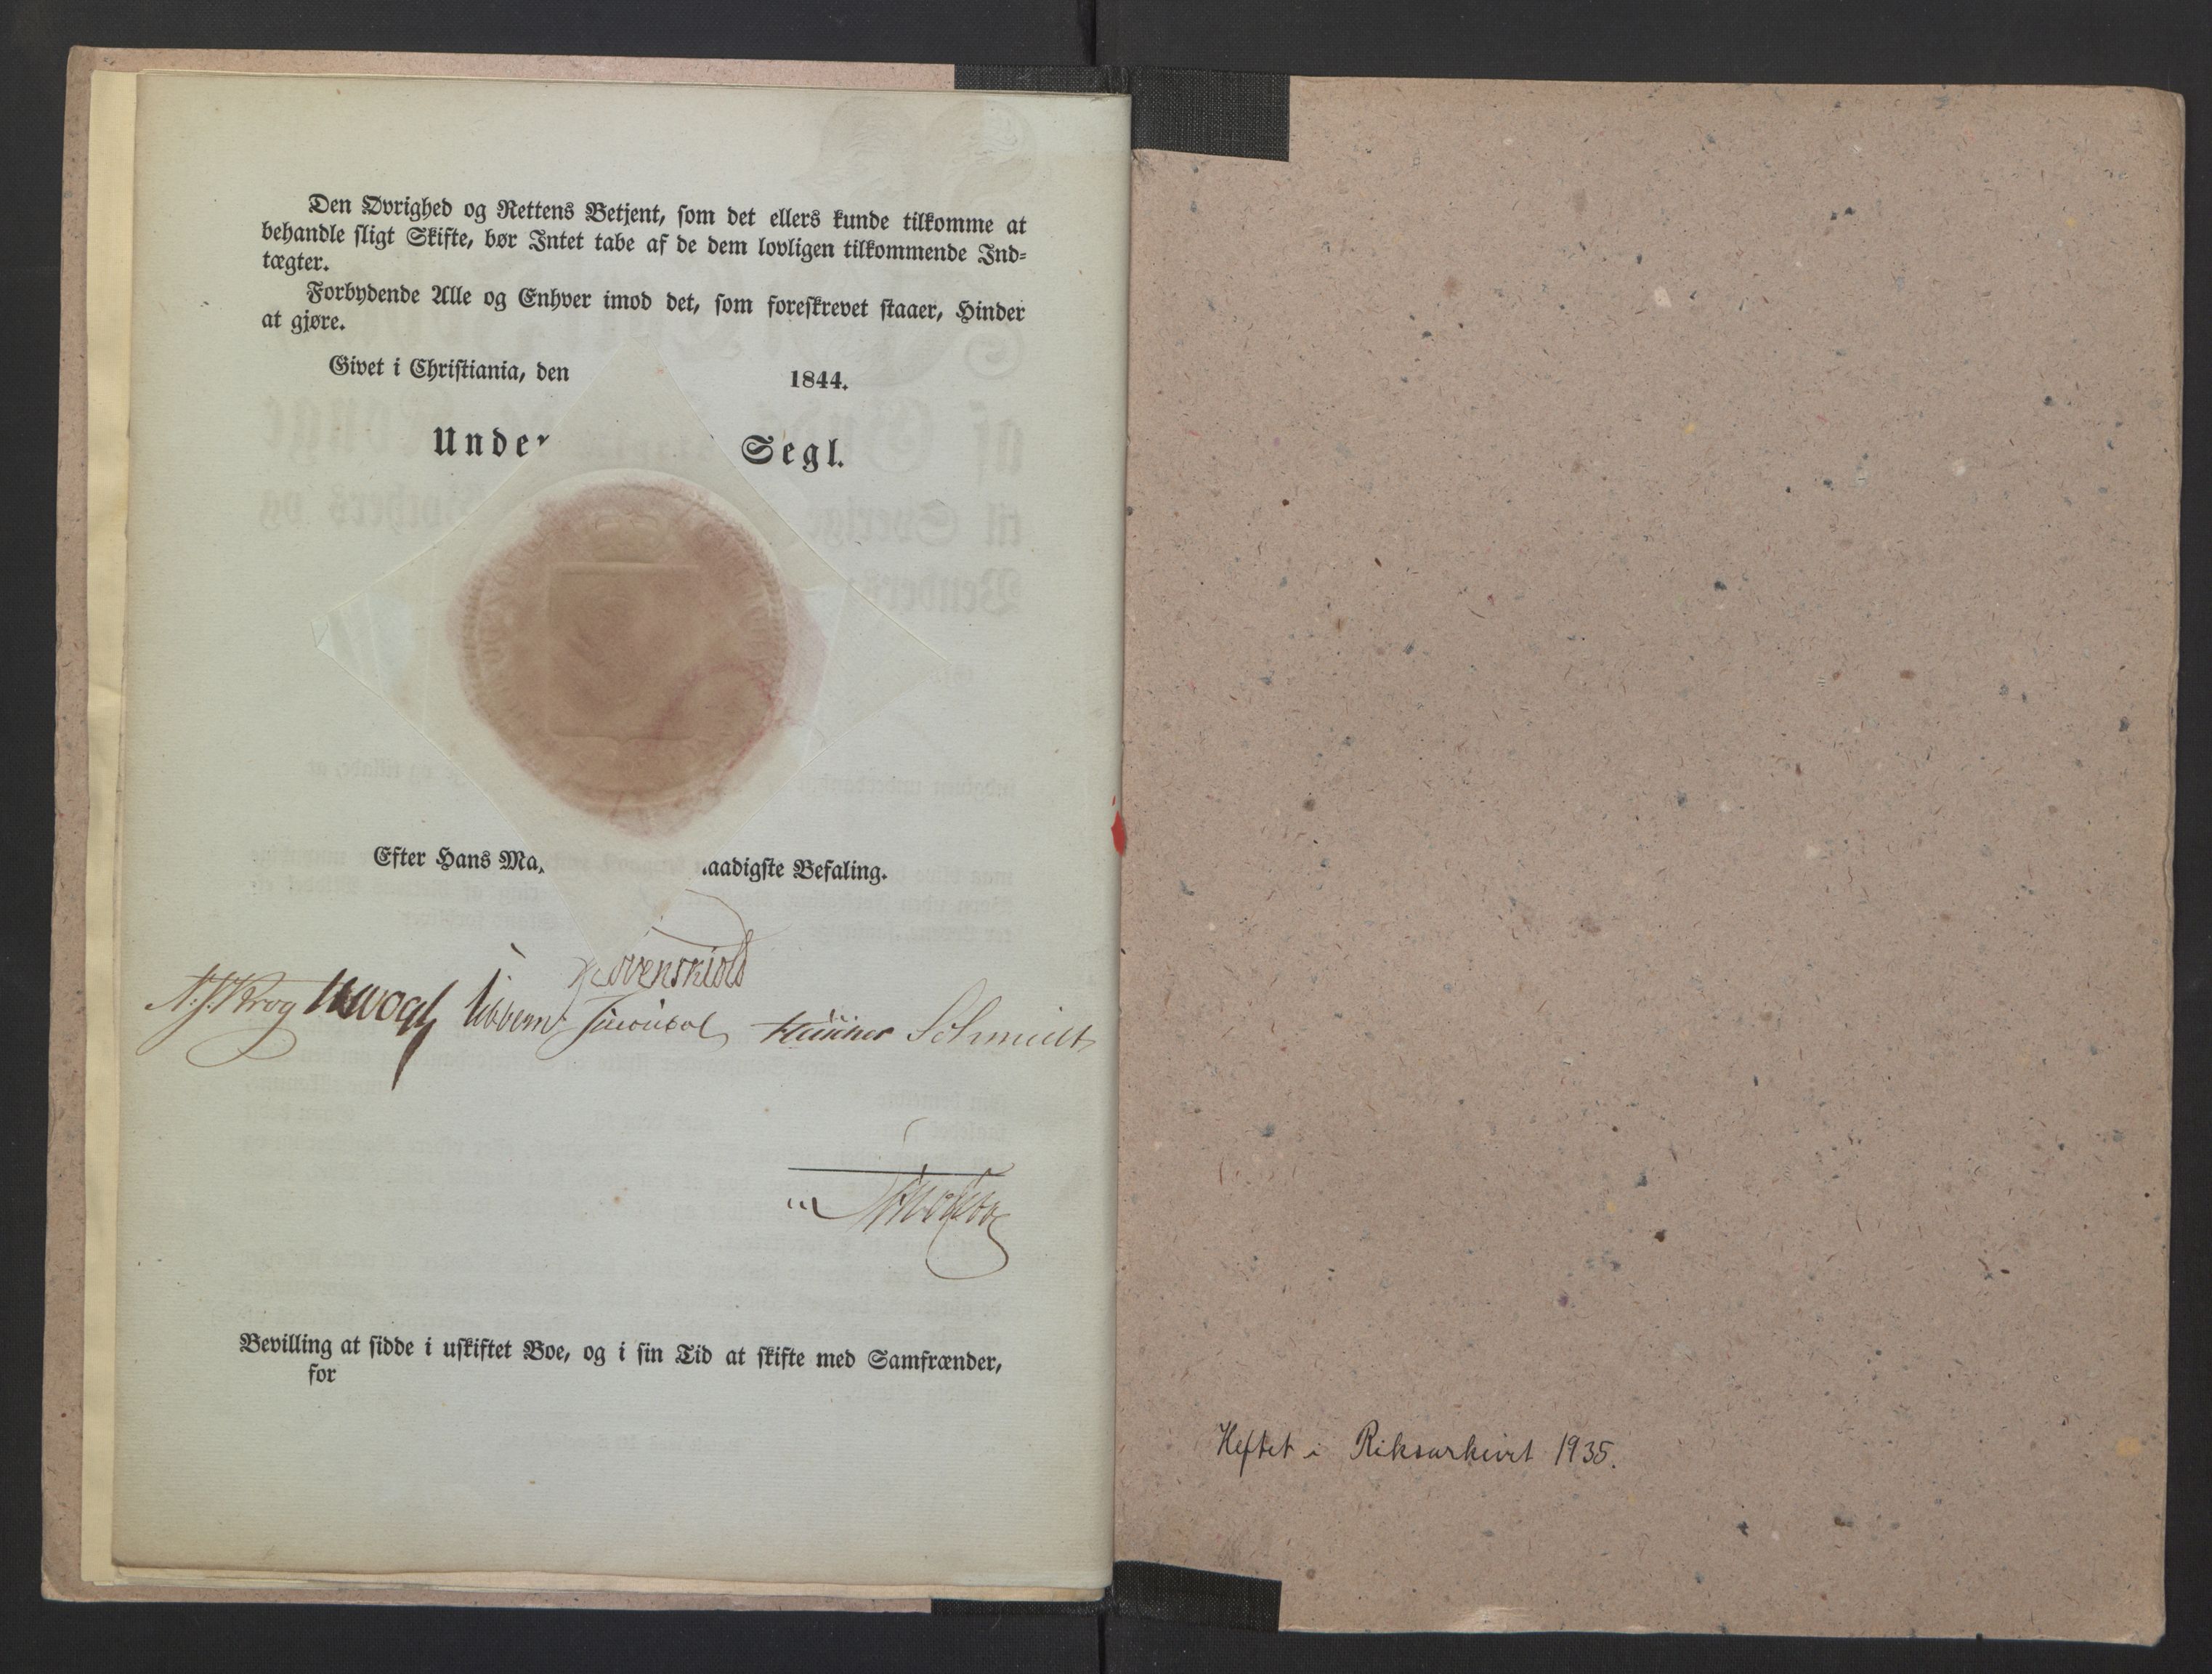 Den Øvrighed og Rettens Betjent, som det ellers kunde tilkomme at
behandle sligt Skifte, bør Intet tabe af de dem lovligen tilkommende Ind=
tægter.
Forbydende Alle og Enhver imod det, som foreskrevet staaer, Hinder
at gjøre.
Givet i Christiania, den 1844.
Under Segl.
Efter Hans Ma aadigste Befaling.
Løvenskiold
N. J. Krog Vogt Schmidt
Bevilling at sidde i uskiftet Boe, og i sin Tid at skifte med Samfrænder,
for
Heftet i Riksarkivet 1935.